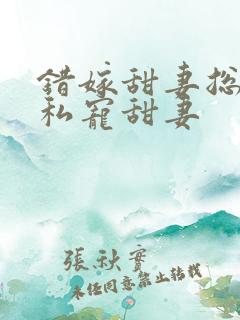 错嫁甜妻总
私宠甜妻
張秋實
未经同意禁止转载